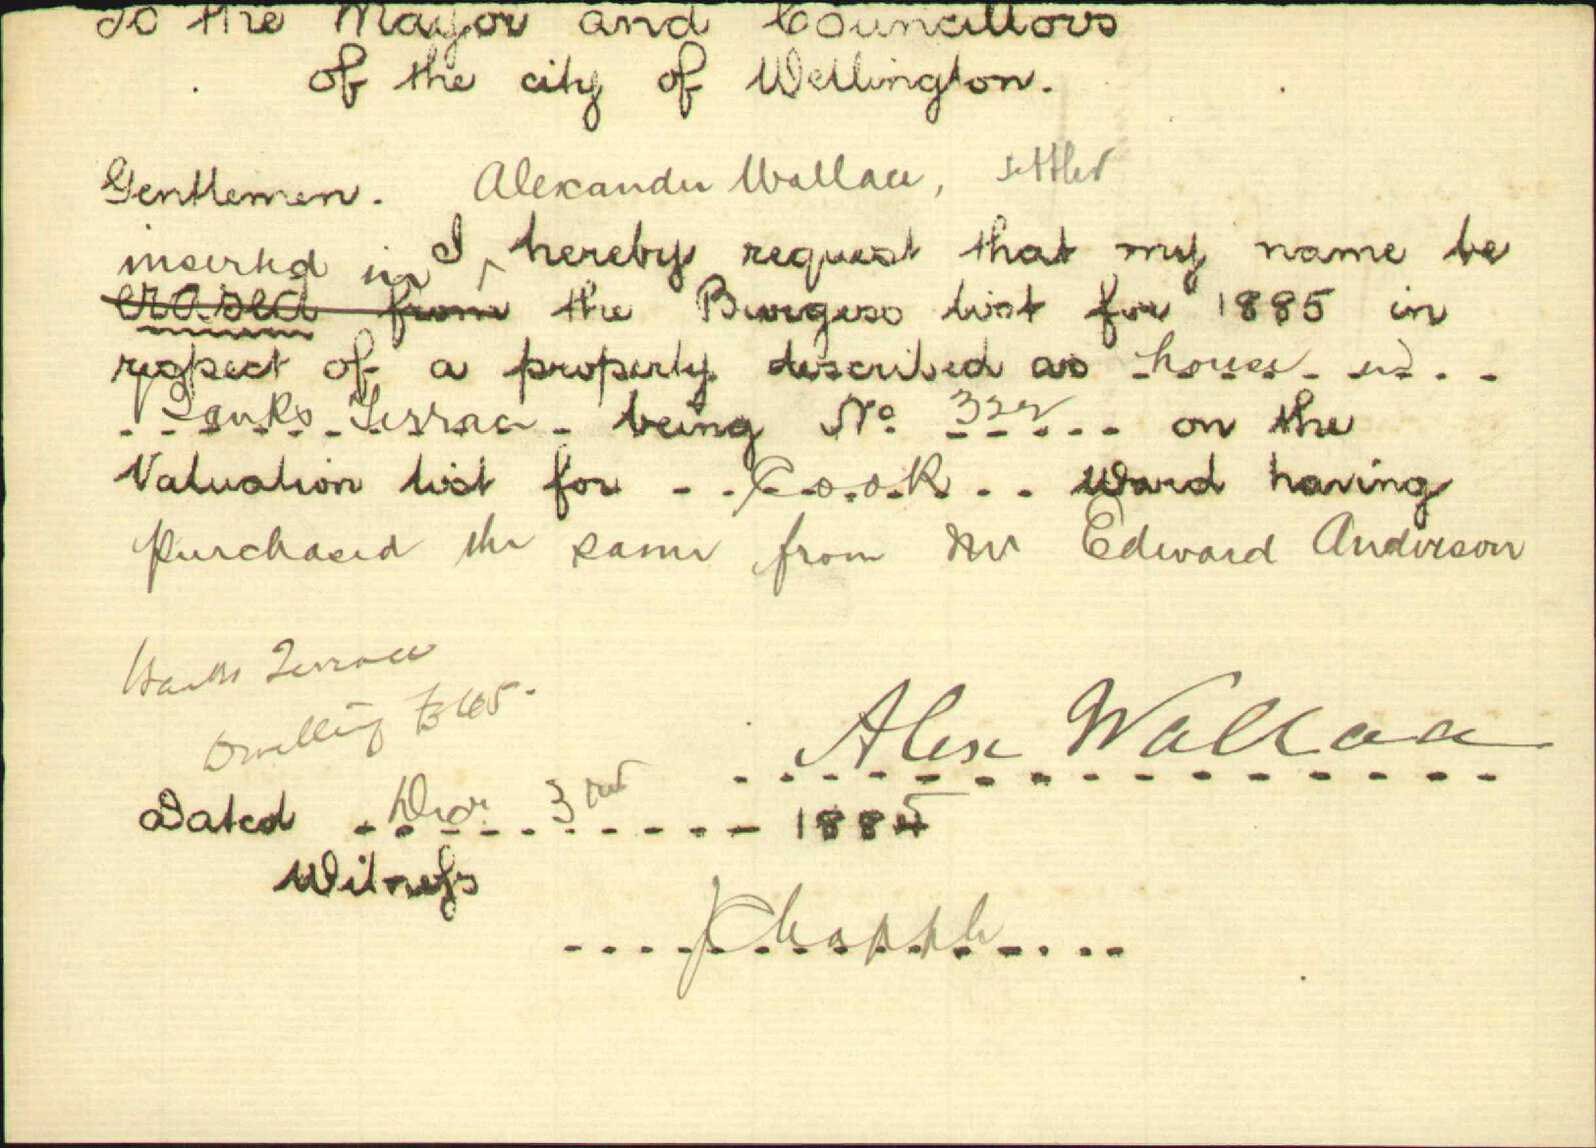 To the Mayor and Councillors
of the city of Wellington.
Gentlemen. Alexander Wallace, settler
I hereby request that my name be
inserted in
erased from the Burgess list for 1885 in
respect of a property described as house in
Banks Terrace being No 322 on the
Valuation list for Cook Ward having
purchased the same from Mr Edward Anderson
Banks Terrace
Dwelling £365.
Alex Wallace
Dated 3rd 1885
Witness
J Chapple